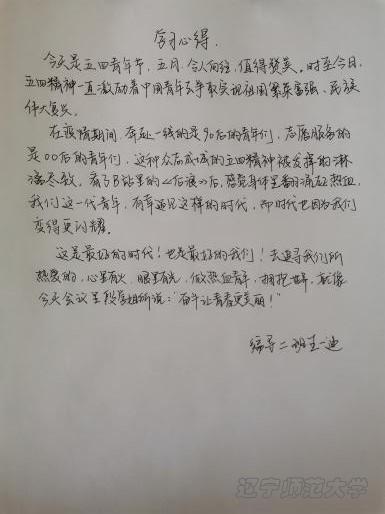 学习心得.
今天是五四青年节，五月，令人向往，值得赞美。时至今日，
五四精神一直激励着中国青年去争取实现祖国繁荣富强、民族
伟大复兴。
在疫情期间，奔赴一线的是90后的青年们，志愿服务的
是00后的青年们，这种众志成城的五四精神被发挥的淋
漓尽致。看了B站里的《后浪》后，感觉身体里翻涌着热血，
我们这一代青年，有幸遇见这样的时代，即时代也因为我们
变得更闪耀。
这是最好的时代！也是最好的我们！去追寻我们所
热爱的，心里有火，眼里有光，做热血青年，拥抱世界，就像
今天会议里段学姐所说：“奋斗让青春更美丽！”
编导二班王一迪
辽宁师范大学